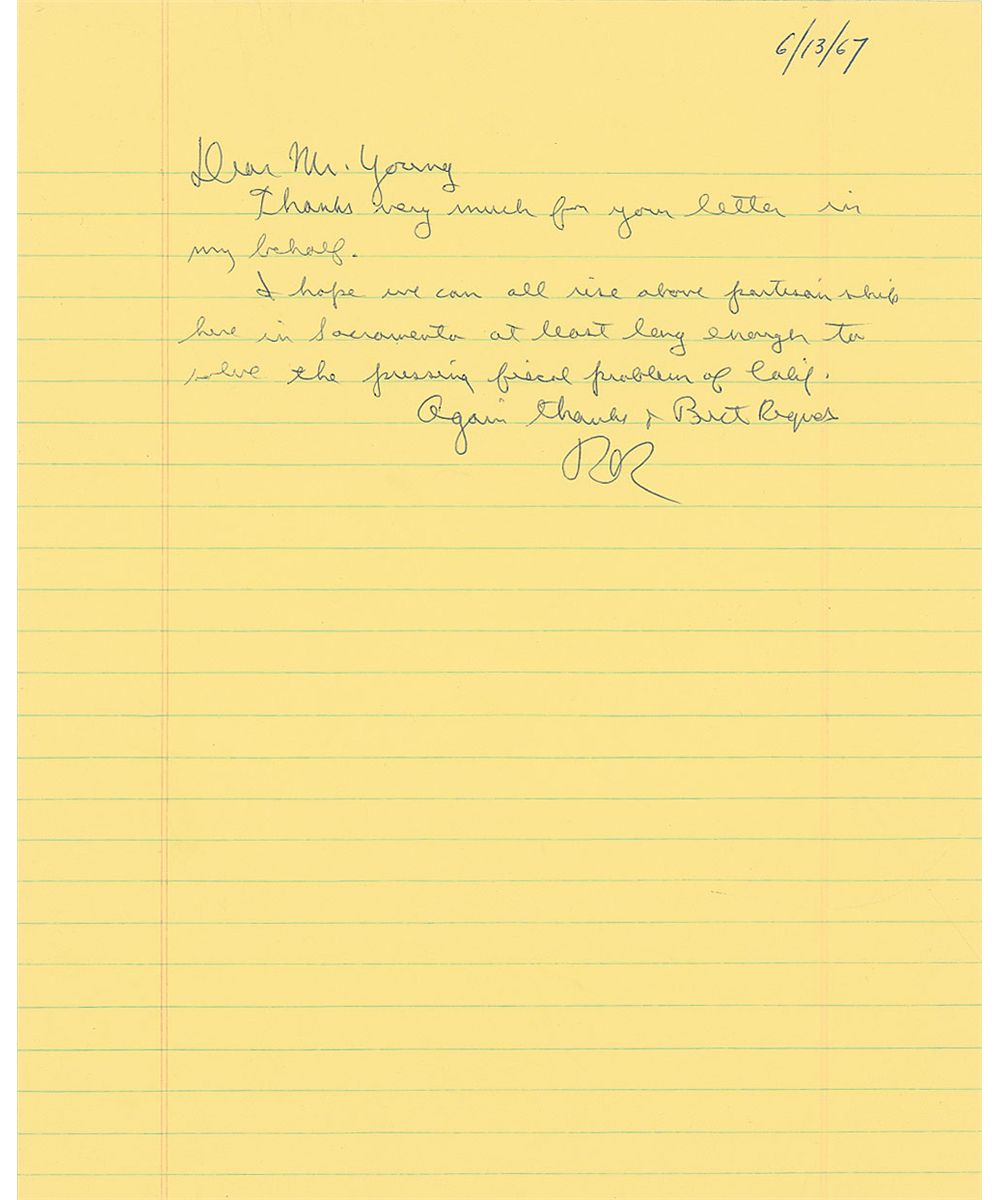 6/13/67
Dear Mr. Young
Thanks very much for your letter in
my behalf.
I hope we can all rise above partisanship
here in Sacramento at least long enough to
solve the pressing fiscal problem of Calif.
Again thanks & Best Regards
RR